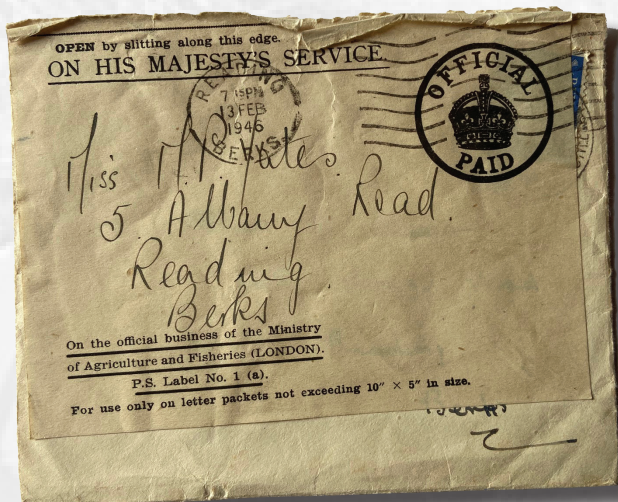 OPEN by slitting along this edge.
ON HIS MAJESTY'S SERVICE.
READING
7 15 PM
13 FEB
1946
BERKS
OFFICIAL
PAID
Miss Yates
5 Albany Road.
Reading.
Berks
On the official business of the Ministry
of Agriculture and Fisheries (LONDON).
P.S. Label No. 1 (a).
For use only on letter packets not exceeding 10″ × 5″ in size.